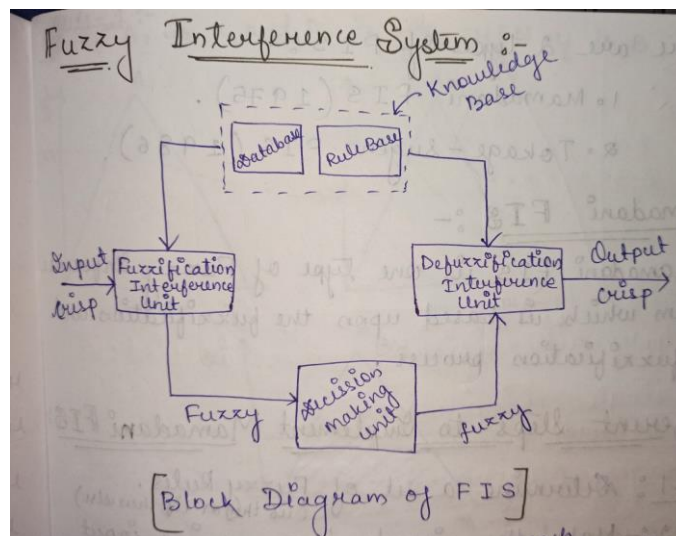 Fuzzy Interference System :-
Knowledge
Base
Database
RuleBase
Input
crisp
Fuzzification
Interference
Unit
Defuzzification
Interference
Unit
Output
crisp
Fuzzy
Decission
making
unit
fuzzy
[Block Diagram of FIS]